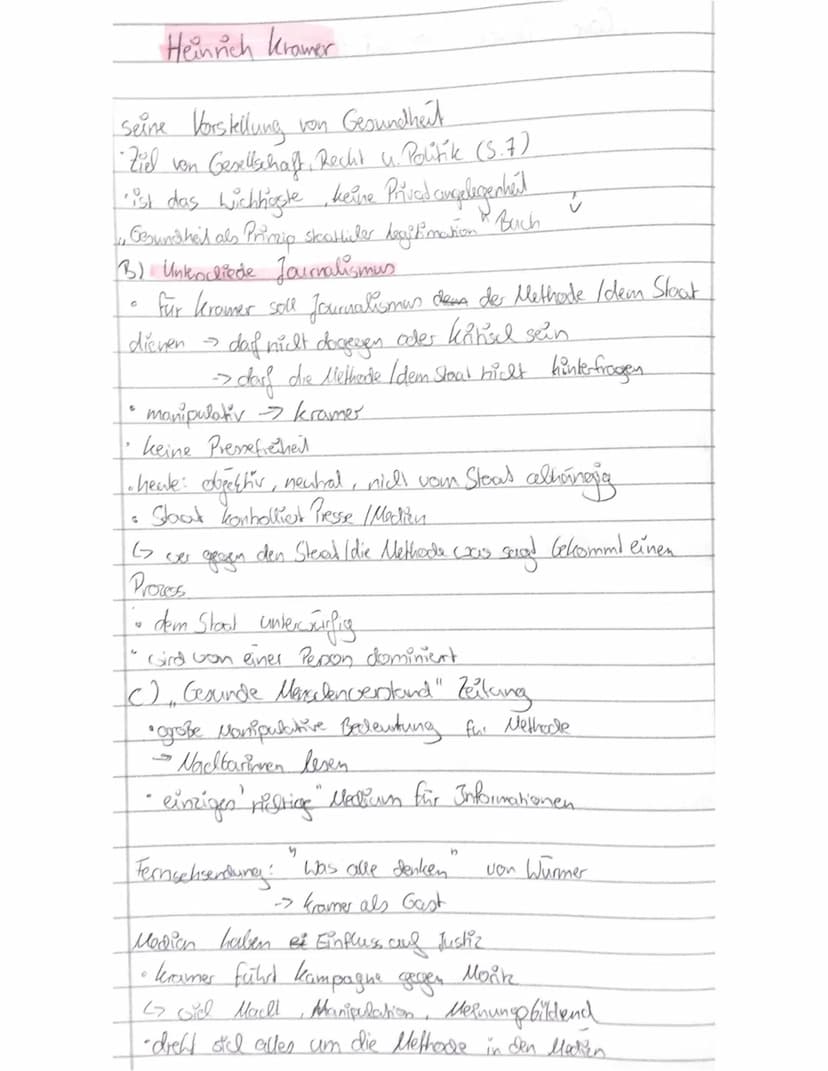 Heinrich Kramer
seine Vorstellung von Gesundheit
· Ziel von Gesellschaft, Recht u. Politik (S.7)
· ist das Wichtigste, keine Privatangelegenheit
„Gesundheit als Prinzip staatlicher Legitimation" Buch
B) Unterschiede Journalismus
• für Kramer soll Journalismus der Methode / dem Staat
dienen → darf nicht dagegen oder kritisch sein
→ darf die Methode / dem Staat nicht hinterfragen
• manipulativ → Kramer
• keine Pressefreiheit
• heute: objektiv, neutral, nicht vom Staat abhängig
• Staat kontrolliert Presse / Medien
↳ wer gegen den Staat / die Methode was sagt bekommt einen
Prozess
• dem Staat unterwürfig
• wird von einer Person dominiert
C) „Gesunde Menschenverstand" Zeitung
• große Manipulative Bedeutung für Methode
→ Nachbarinnen lesen
• einzigen "richtige" Medium für Informationen
Fernsehsendung: "Was alle denken" von Würmer
→ Kramer als Gast
Medien haben Einfluss auf Justiz
• Kramer führt Kampagne gegen Moritz
↳ viel Macht, Manipulation, Meinungsbildend
• dreht sich alles um die Methode in den Medien